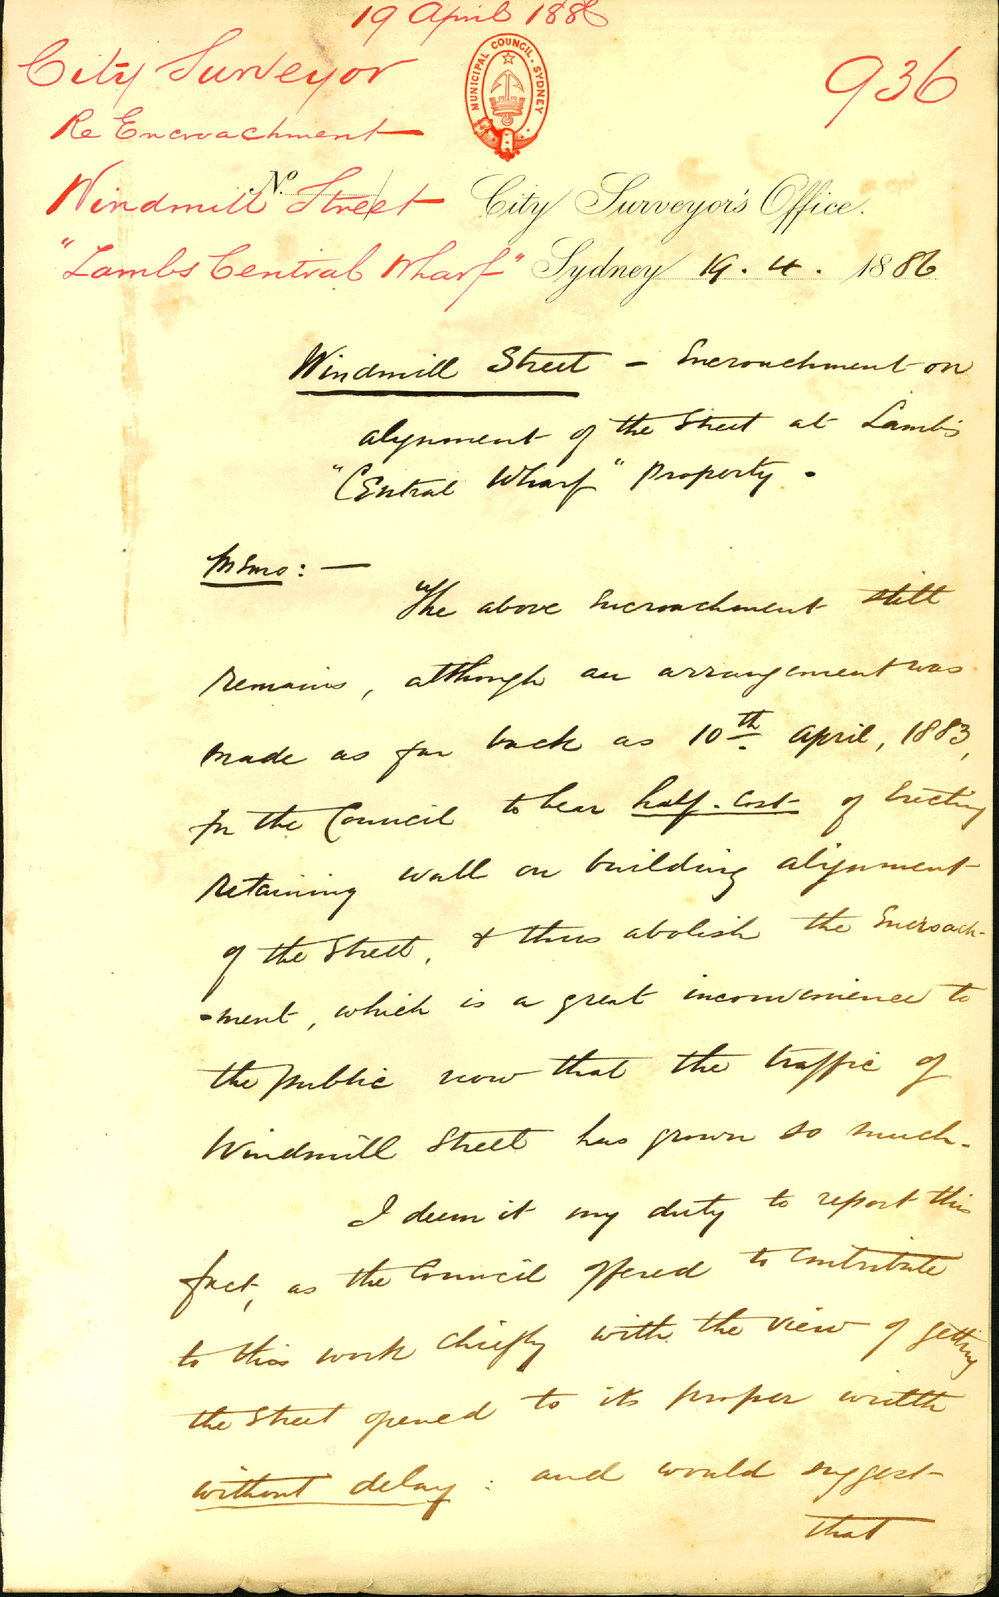 19 April 1886
City Surveyor
936
MUNICIPAL COUNCIL. SYDNEY
Re Encroachment
No
Windmill Street
City Surveyor's Office.
"Lambs Central Wharf"
Sydney 19. 4. 1886
Windmill Street - Encroachment on
alignment of the Street at Lamb's
"Central Wharf" Property.
Memo: —
The above Encroachment still
remains, although an arrangement was
made as far back as 10th April, 1883,
for the Council to bear half-cost of Erecting
retaining wall on building alignment
of the Street, & thus abolish the Encroach-
-ment, which is a great inconvenience to
the public now that the traffic of
Windmill Street has grown so much.
I deem it my duty to report this
fact, as the Council offered to contribute
to this work chiefly with the view of getting
the Street opened to its proper width
without delay: and would suggest
that